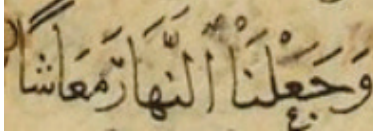 وَجَعَلْنَا النَّهَارَ مَّعَاشًا